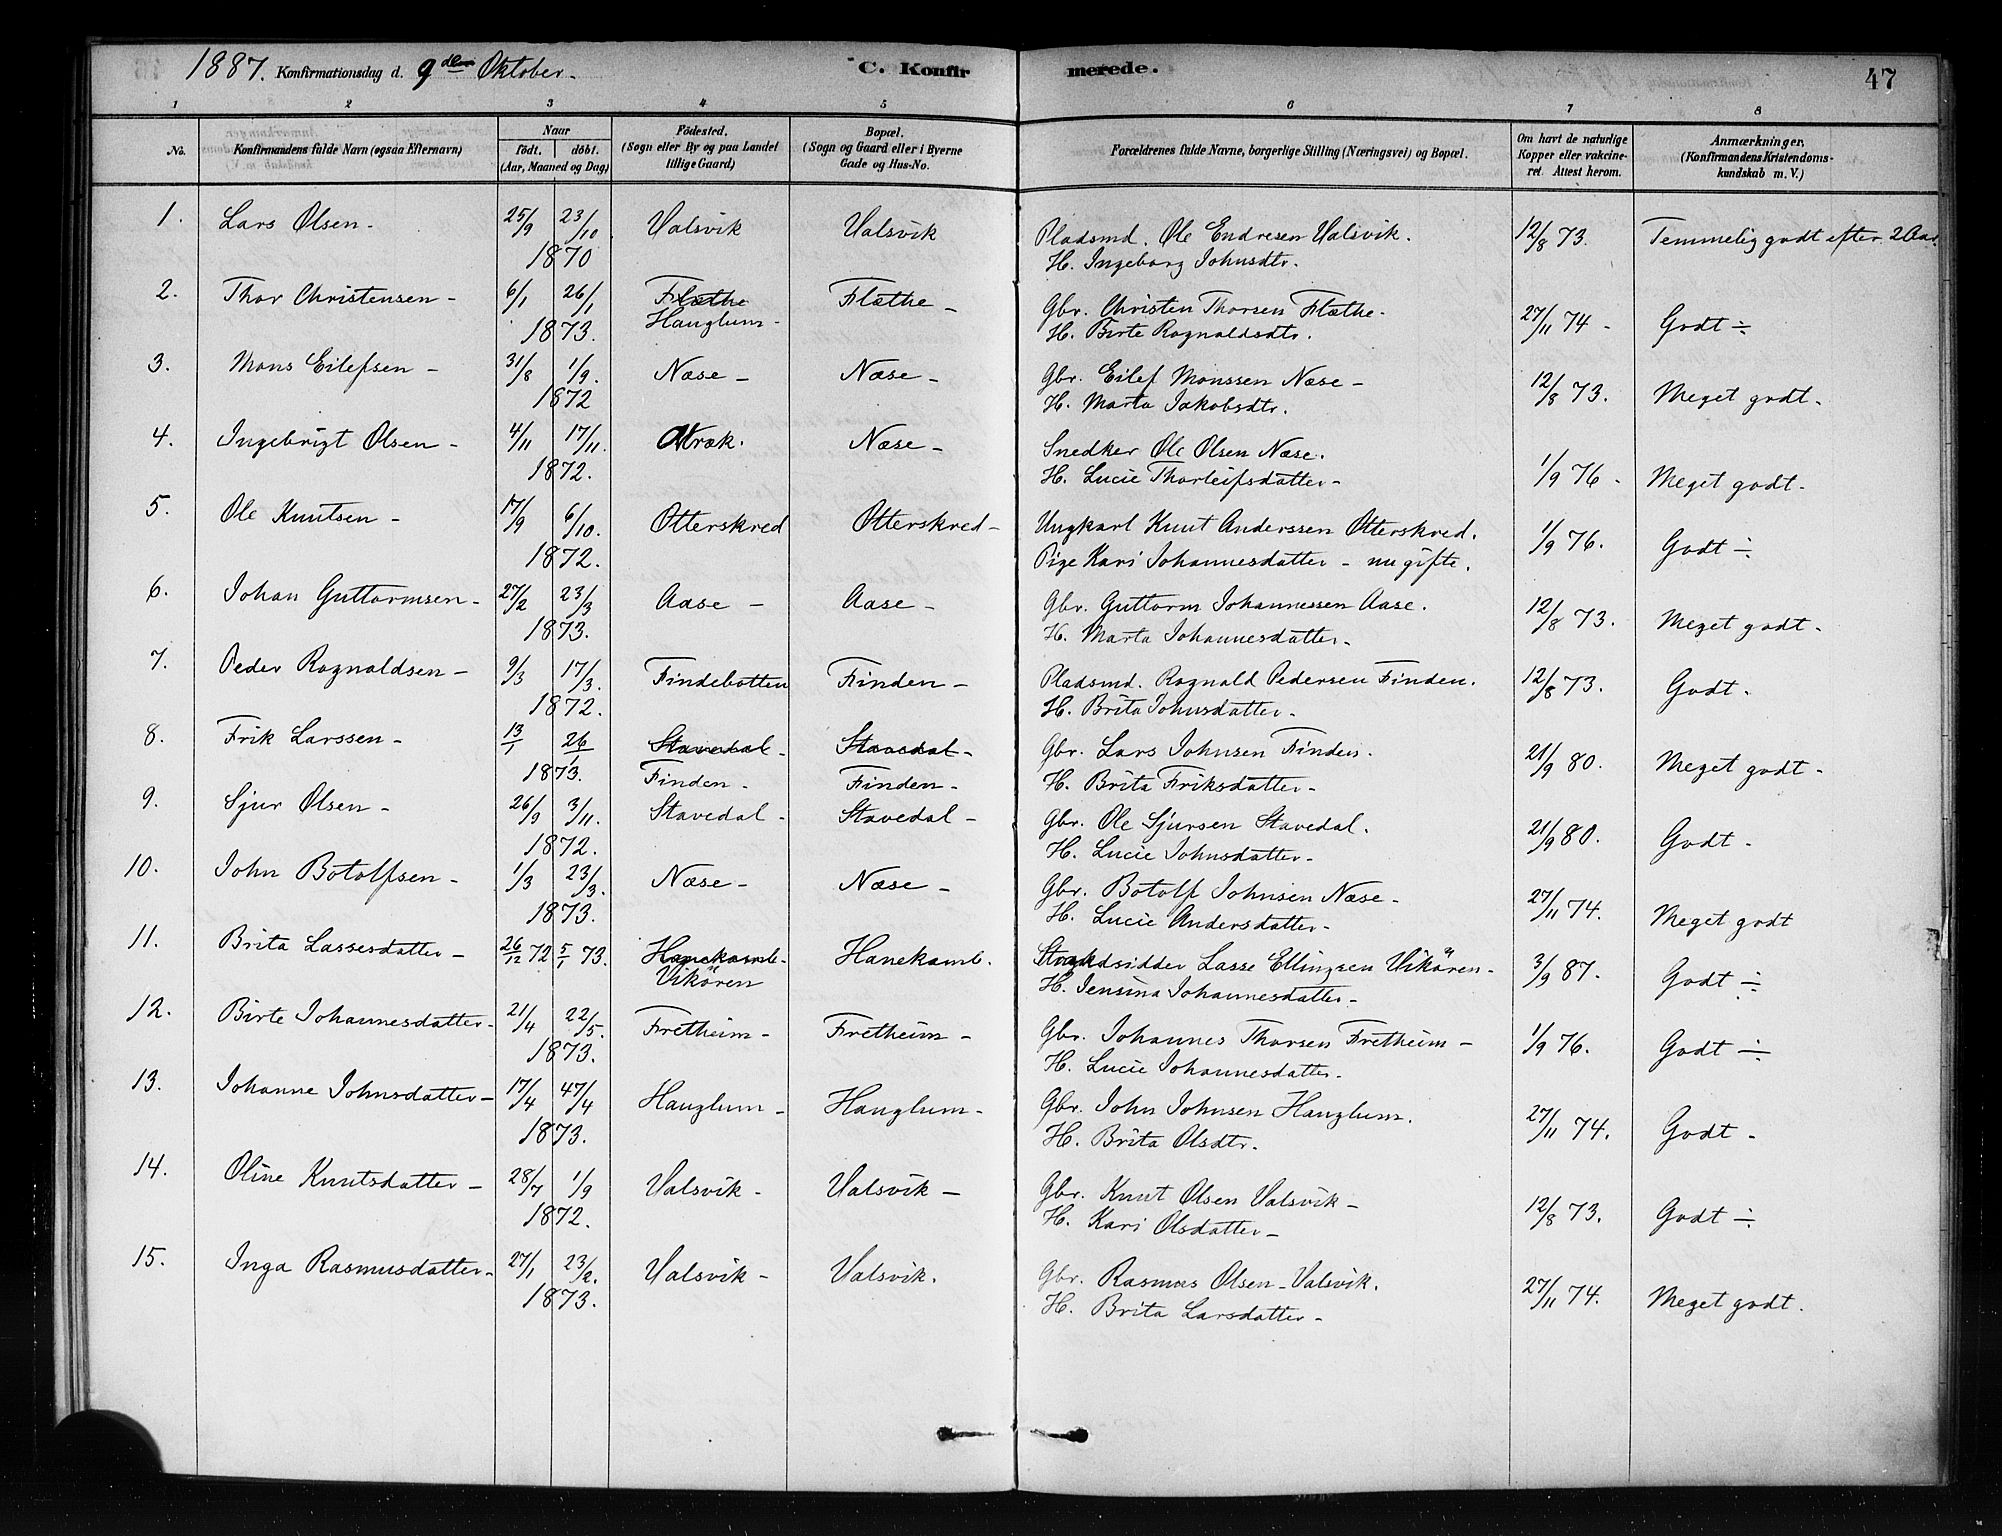 1887. Konfirmationsdag d. 9den Oktober. C. Konfirmerede. 47
1 2 3 4 5 6 7 8
No. Konfirmandens fulde Navn (ogsaa Efternavn) Naar født. døbt. (Aar, Maaned og Dag) Fødested. (Sogn eller By og paa Landet tillige Gaard) Bopæl. (Sogn og Gaard eller i Byerne Gade og Hus-No. Forældrenes fulde Navne, borgerlige Stilling (Næringsvei) og Bopæl. Om havt de naturlige Kopper eller vakcineret. Attest herom. Anmærkninger, (Konfirmandens Kristendomskundskab m. V.)
1. Lars Olsen - 25/9 23/10 Valsvik Valsvik Pladsmd. Ole Endresen Valsvik. 12/8 73. Temmelig godt efter 2 Aar.
1870 H. Ingeborg Johnsdtr.
2. Thor Christensen - 6/1 26/1 Flæthe Flæthe - Gbr. Christen Thorsen Flæthe. 27/11 74 - Godt ÷
1873. Hauglum - H. Birte Rognaldsdtr.
3. Mons Eilefsen - 31/8 1/9. Næse - Næse - Gbr. Eilef Monssen Næse - 12/8 73. Meget godt.
1872 H. Marta Jakobsdtr.
4. Ingebrigt Olsen - 4/11 17/11. Næse - Snedker Ole Olsen Næse. 1/9 76 - Meget godt.
1872. H. Lucie Thorleifsdatter -
5. Ole Knutsen - 17/9 6/10. Otterskred Otterskred - Ungkarl Knut Anderssen Otterskred. 1/9 76. Godt ÷
1872. Pige Kari Johannesdatter - nu gifte.
6. Johan Guttormsen - 27/2 23/3 Aase - Aase - Gbr. Guttorm Johannessen Aase. 12/8 73. Meget godt.
1873. H. Marta Johannesdatter -
7. Peder Rognaldsen - 9/3 17/3. Findebotten Finden - Pladsmd. Rognald Pedersen Finden. 12/8 73. Godt.
1872. H. Brita Johnsdatter -
8. Frik Larssen - 13/1 26/1 Stavedal - Stavedal - Gbr. Lars Johnsen Finden. 21/9 80. Meget godt -
1873. Finden - Finden - H. Brita Friksdatter -
9. Sjur Olsen - 26/9 3/11. Stavedal - Stavedal - Gbr. Ole Sjursen Stavedal. 21/9 80. Godt -
1872. H. Lucie Johnsdatter -
10. John Botolfsen - 1/3 23/3. Næse - Næse - Gbr. Botolf Johnsen Næse - 27/11 74. Meget godt
1873. H. Lucie Andersdatter -
11. Brita Lassesdatter - 26/12 72 5/1 73. Hanekamb - Hanekamb. Strandsidder Lasse Ellingsen Vikören - 3/9 87. Godt ÷
Vikören H. Jensina Johannesdatter -
12. Birte Johannesdatter - 21/4 22/5. Fretheim - Fretheim - Gbr. Johannes Thorsen Fretheim - 1/9 76. Godt ÷
1873. H. Lucie Johannesdatter -
13. Johanne Johnsdatter - 17/4 47/4 Hauglum - Hauglum - Gbr. John Johnsen Hauglum. 27/11 74. Godt -
1873. H. Brita Olsdtr.
14. Oline Knutsdatter - 28/7 1/9 Valsvik - Valsvik - Gbr. Knut Olsen Valsvik - 12/8 73. Godt ÷
1872. H. Kari Olsdatter -
15. Inga Rasmusdatter - 27/1 23/2. Valsvik - Valsvik. Gbr. Rasmus Olsen - Valsvik. 27/11 74. Meget godt.
1873. H. Brita Larsdatter -